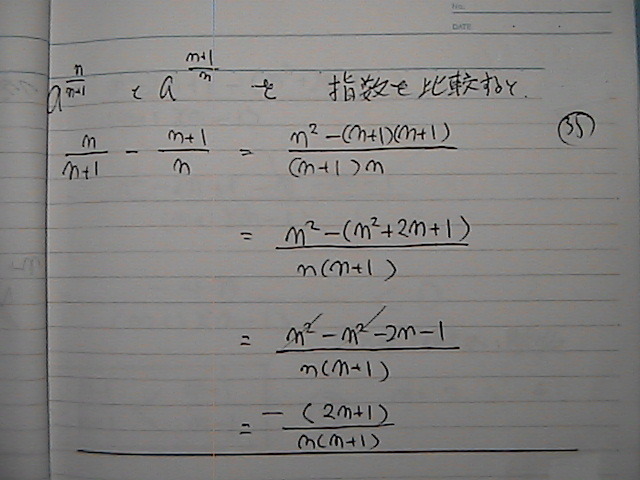 No.
DATE
a^{\frac{n}{n+1}} と a^{\frac{n+1}{n}} を 指数を比較すると.
\frac{n}{n+1} - \frac{n+1}{n} = \frac{n^2-(n+1)(n+1)}{(n+1)n} (35)
= \frac{n^2-(n^2+2n+1)}{n(n+1)}
= \frac{n^2-n^2-2n-1}{n(n+1)}
= \frac{-(2n+1)}{n(n+1)}